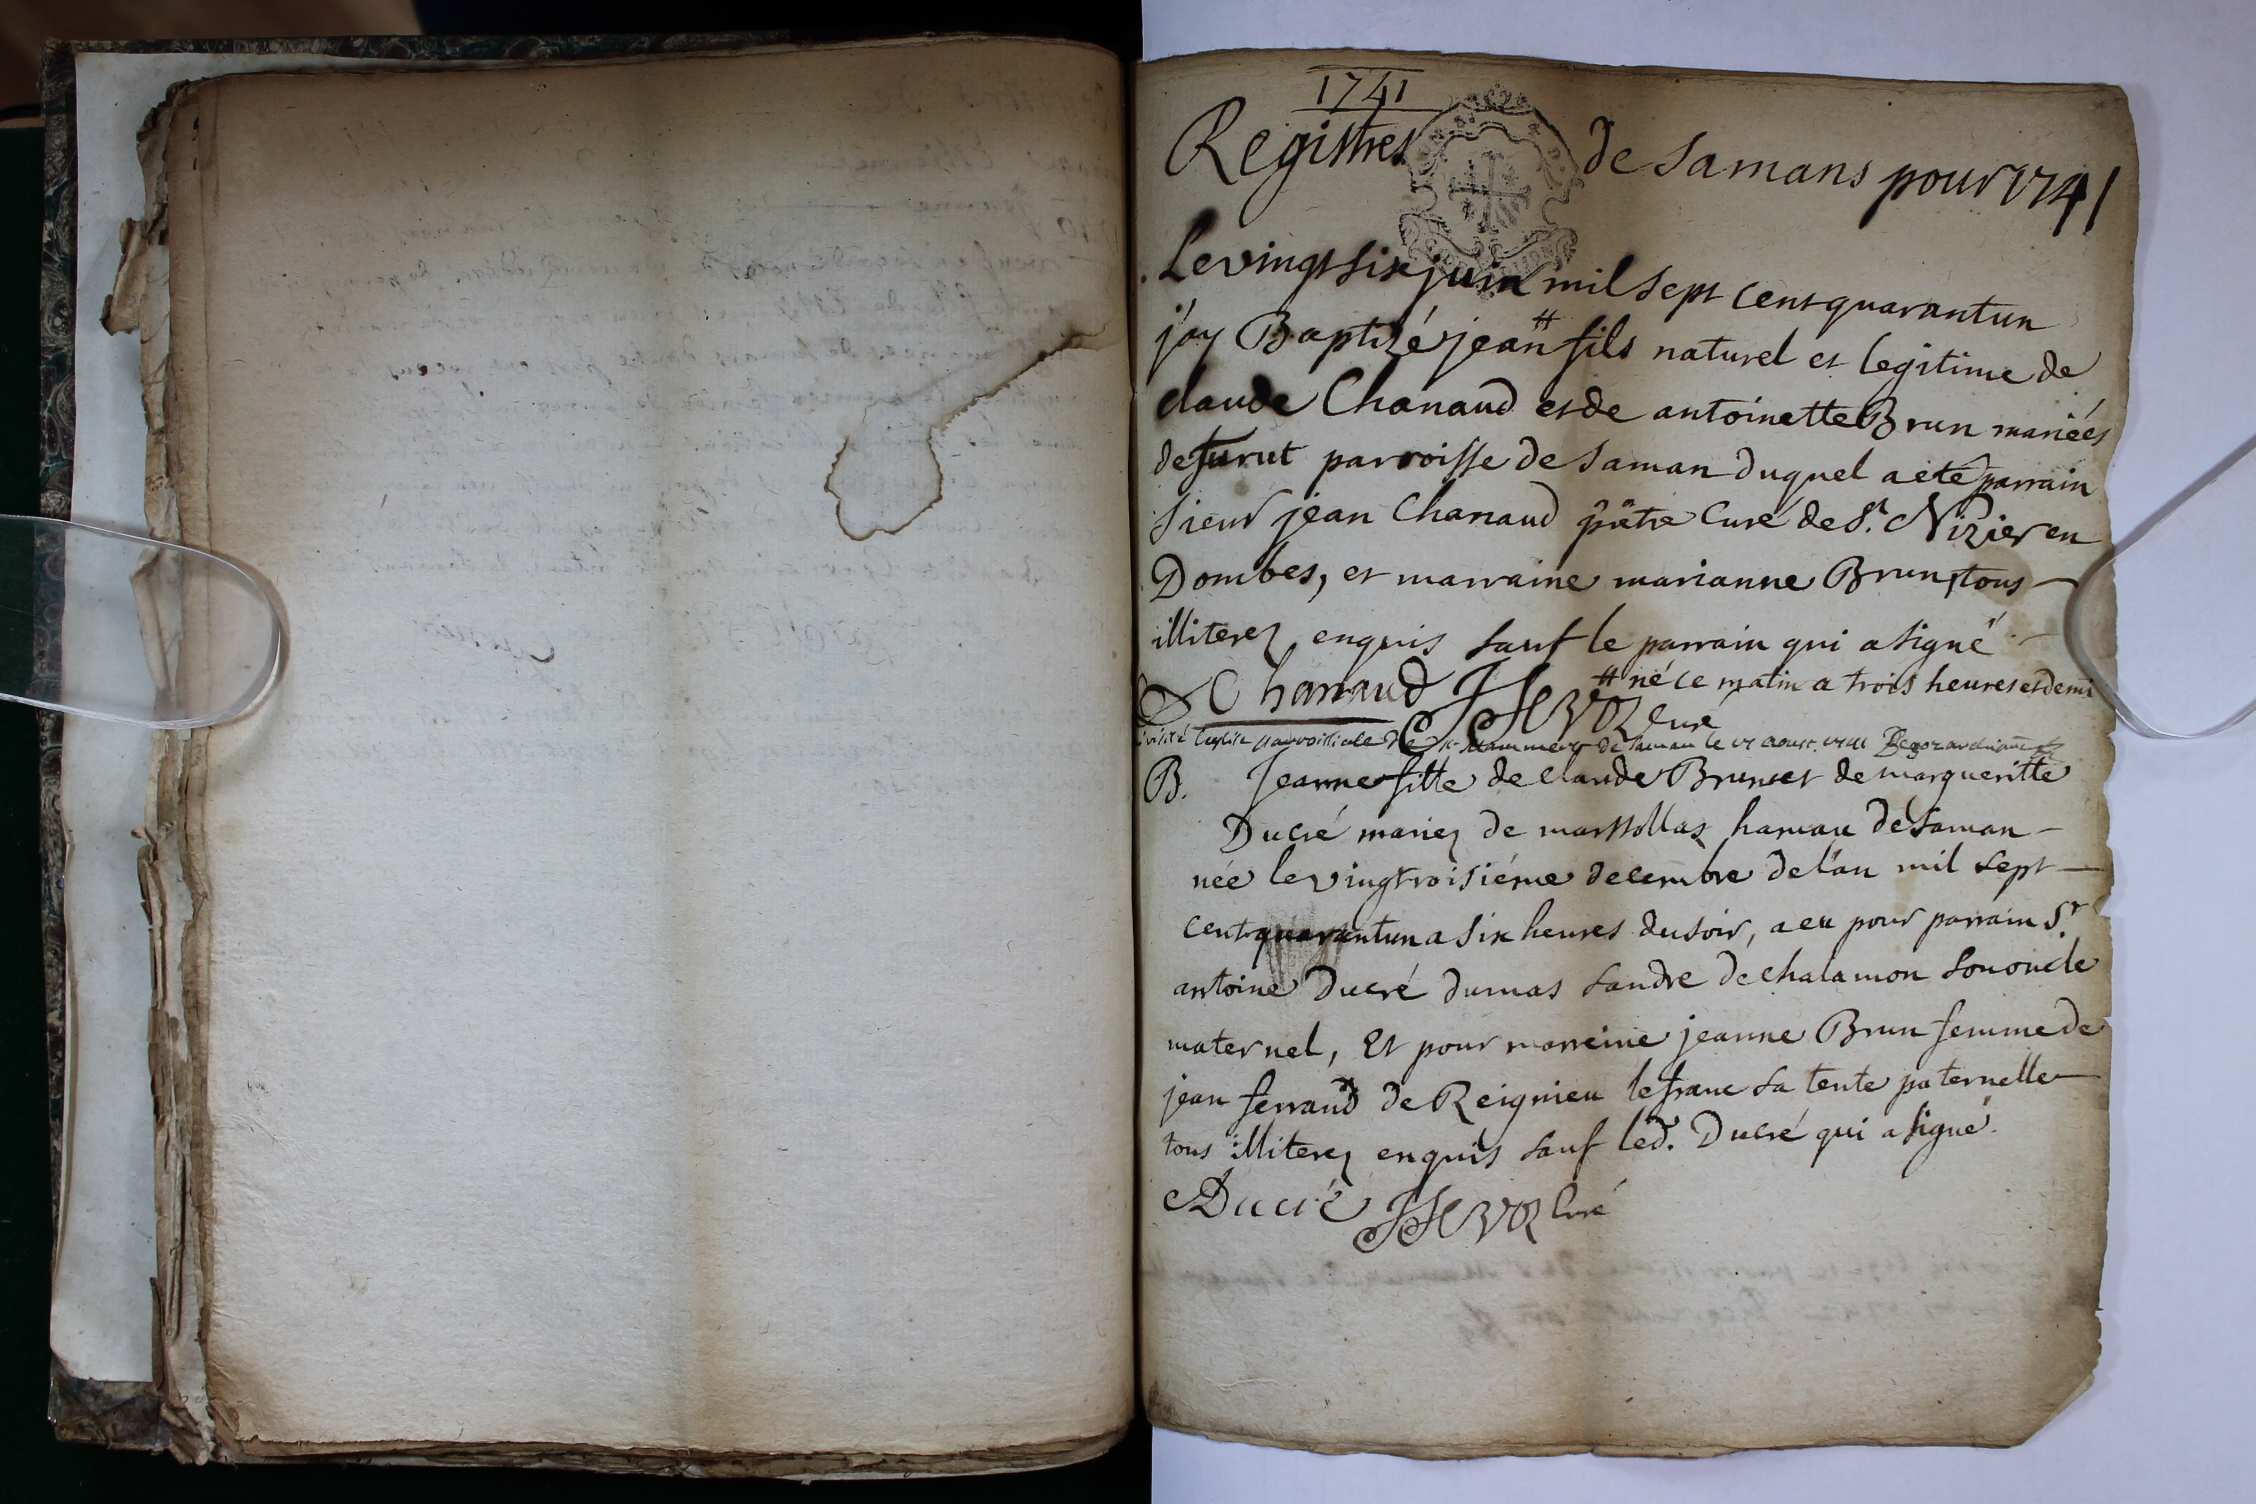 1741
Registres de Samans pour 1741
Le vingt six juin mil sept cent quarant un
j'ay Baptizé jean # fils naturel et legitime de
claude Chanaud et de antoinette Brun mariéz
de furut parroisse de Saman duquel a eté parrain
sieur jean Chanaud prêtre Curé de St. Nizier en
Dombes, et marraine marianne Brun, tous
illiterez enquis sauf le parrain qui a signé
# né ce matin a trois heures et demi
Chanaud curé
visité l'eglise parroissiale de St Mammert de Saman le 17 aoust 1741
B. Jeanne fille de claude Brun et de margueritte
Ducré mariez de marssollaz hameau de Saman
née le vingtroisiéme decembre de l'an mil sept
cent quarantun a six heures du soir, a eu pour parrain Sr.
antoine Ducré dumas Sandre de chalamon son oncle
maternel, Et pour marreine jeanne Brun femme de
jean ferrand de Reignieu lefranc sa tente paternelle
tous illiterez enquis sauf led. Ducré qui a signé
Ducré curé